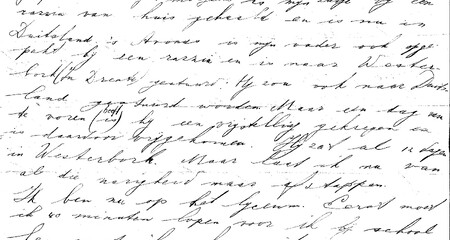 razzia van huis gehaald en is nu in
Duitsland is mijn vader ook opge-
pakt bij een razzia en is naar Wester-
bork (in Drente) gestuurd. Hij zou ook naar Duits-
land gestuurd worden. Maar een dag van
te voren (heeft) hij een vrijstelling gekregen en
is daarvoor vrijgekomen. Hij zat al 10 dagen
in Westerbork. Maar laat ik nu van
al die narigheid maar afstappen.
Ik ben nu op het lyceum. Eerst moet
ik 40 minuten lopen voor ik bij school